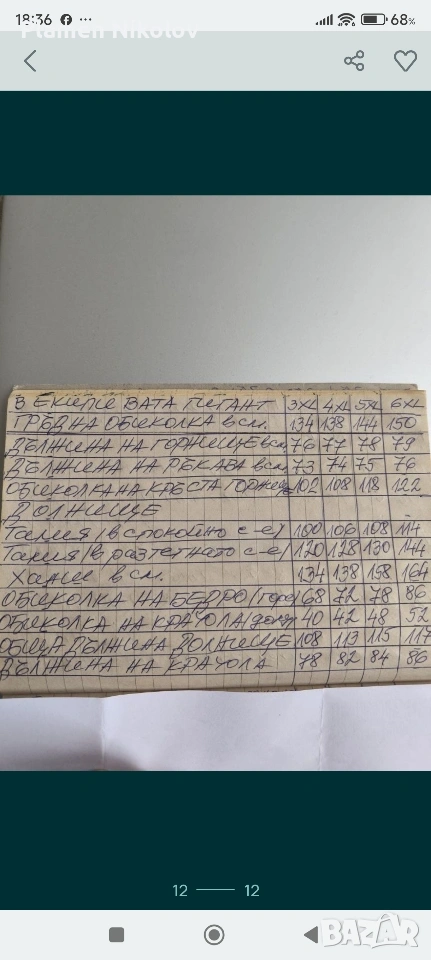 18:36 ... 68%
Plamen Nikolov
В ЕКИПИ ВАТА ГИГАНТ 3XL 4XL 5XL 6XL
ГРЪДНА ОБИКОЛКА в см. 134 138 144 150
ДЪЛЖИНА НА ГОРНИЩЕ в см. 76 77 78 79
ДЪЛЖИНА НА РЪКАВА в см. 73 74 75 76
ОБИКОЛКА НА КРЪСТА ГОРНИЩЕ 102 108 118 122
ДОЛНИЩЕ
Талия /в спокойно с-е/ 100 106 108 114
Талия /в разтегнато с-е/ 120 128 130 144
Ханш в см. 134 138 158 164
ОБИКОЛКА НА БЕДРО /горе/ 68 72 78 86
ОБИКОЛКА НА КРАЧОЛА /долу 40 42 48 52
ОБЩА ДЪЛЖИНА ДОЛНИЩЕ 108 113 115 117
ДЪЛЖИНА НА КРАЧОЛА 78 82 84 86
12 12
BAZAR